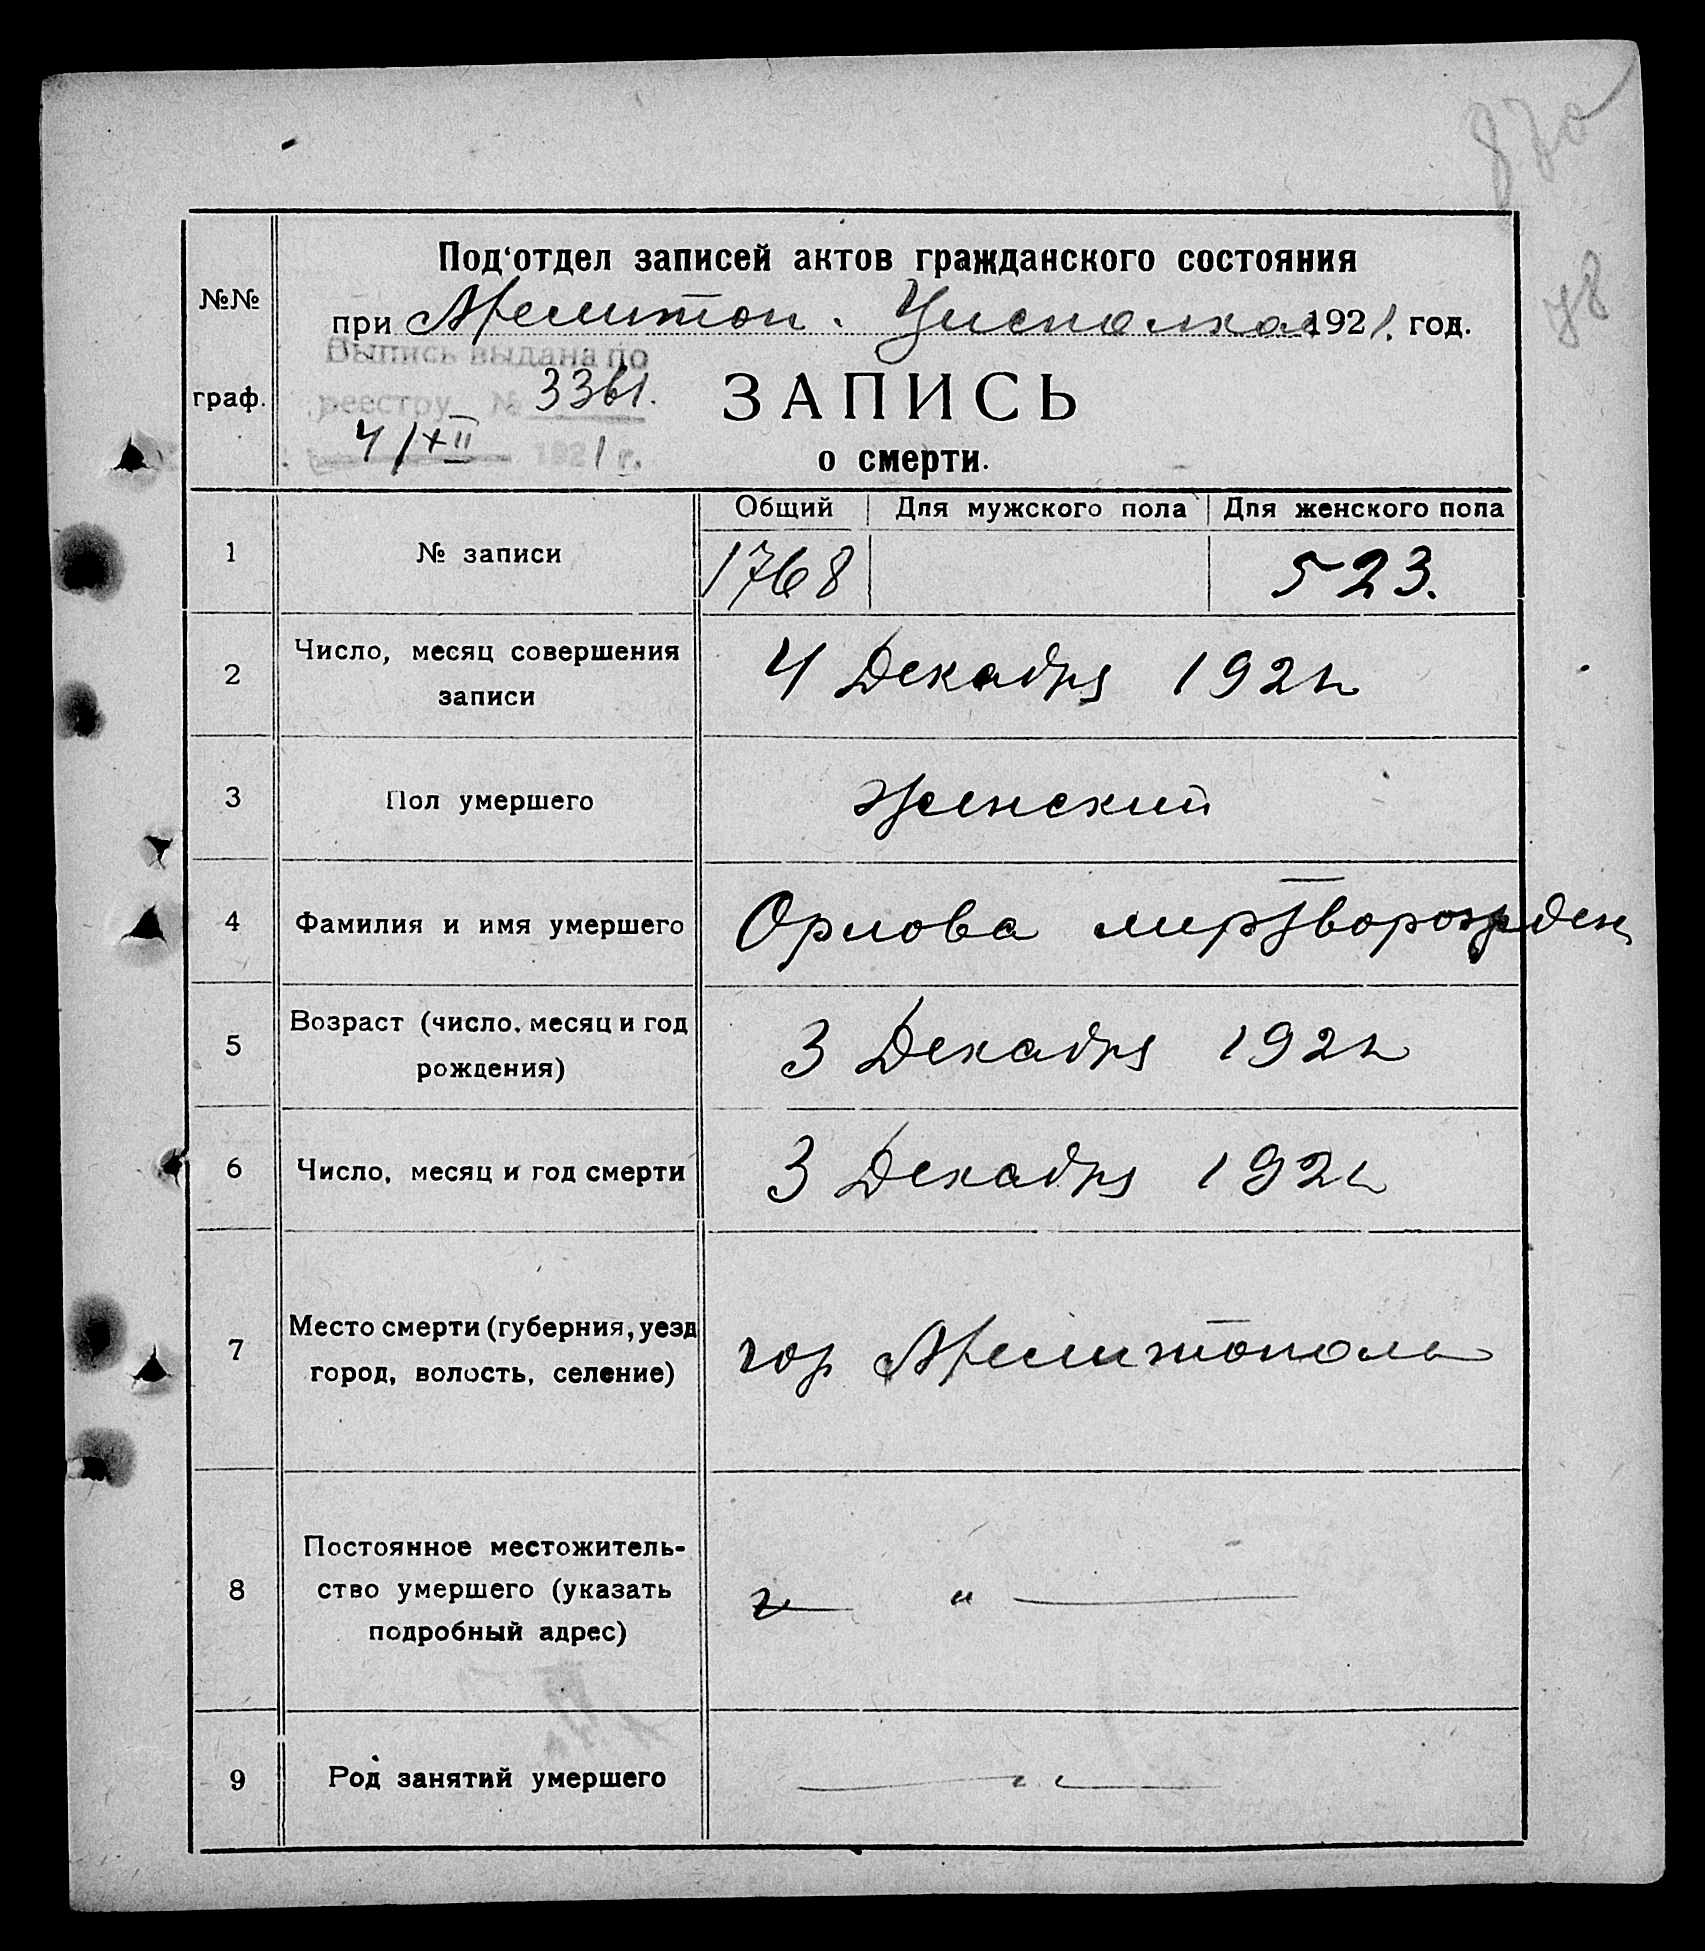 870
48
Под‘отдел записей актов гражданского состояния
№№
при Мелитоп. Уисполкома 1921. год.
Выпись выдана по
реестру № 3361.
граф.
ЗАПИСЬ
4/XII 1921 г.
о смерти.
Общий Для мужского пола Для женского пола
1 № записи 1768 523.
2 Число, месяц совершения
записи
4 Декабря 1921
3 Пол умершего Женский
4 Фамилия и имя умершего Орлова мертворожден
5 Возраст (число, месяц и год
рождения)
3 Декабря 1921
6 Число, месяц и год смерти 3 Декабря 1921
7 Место смерти (губерния, уезд
город, волость, селение)
гор Мелитополь
8 Постоянное местожитель-
ство умершего (указать
подробный адрес)
— „ —
9 Род занятий умершего — „ —